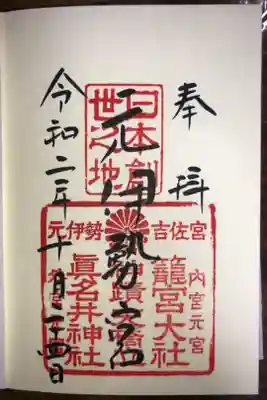 奉拝
日本創
世之地
元伊勢宮
令和二年十月二十四日
元伊勢吉佐宮
内宮元宮
籠宮大社
眞名井神社